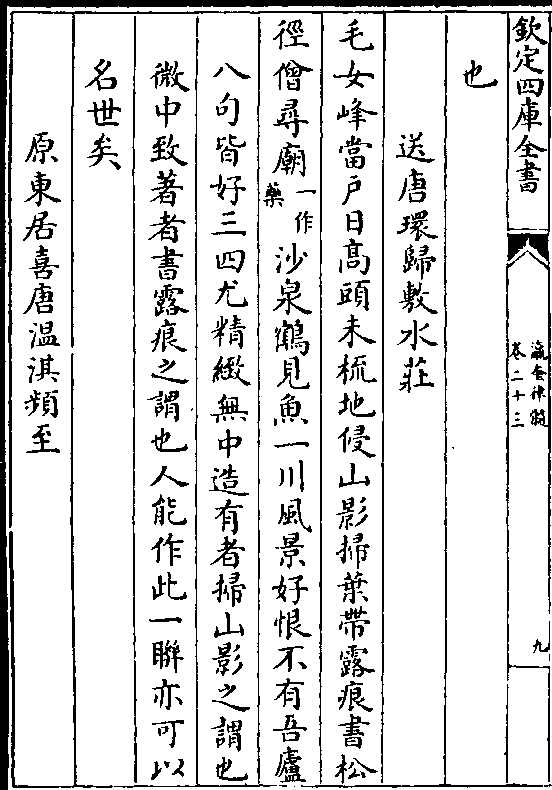 欽定四庫全書
瀛奎律髓
卷二十三
九
也
送唐環歸敷水莊
毛女峰當戸日髙頭未梳地侵山影掃葉帶露痕書松
徑僧尋廟一作藥沙泉鶴見魚一川風景好恨不有吾廬
八句皆好三四尤精緻無中造有者掃山影之謂也
微中致著者書露痕之謂也人能作此一聨亦可以
名世矣
原東居喜唐温淇頻至